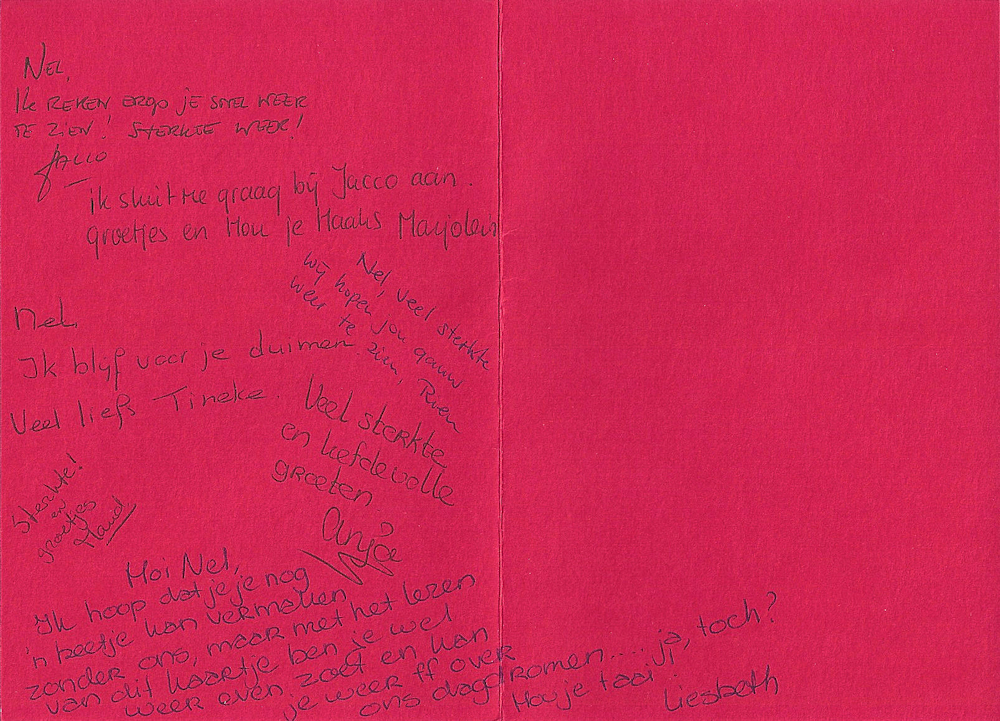 Nel,
Ik reken erop je snel weer
te zien! Sterkte weer!
Jacco
ik sluit me graag bij Jacco aan.
groetjes en Hou je Haaks Marjolein
Nel, veel sterkte
wij hopen jou gauw
weer te zien,
Nel,
Ik blijf voor je duimen.
Veel liefs Tineke.
Veel sterkte
en liefdevolle
groeten
Anja
Sterkte!
en
groetjes
Hoi Nel,
Ik hoop dat je je nog
'n beetje kan vermaken
zonder ons, maar met het lezen
van dit kaartje ben je wel
weer even zoet en kan
je weer ff over
ons dagdromen.... ja, toch?
Hou je taai!
Liesbeth